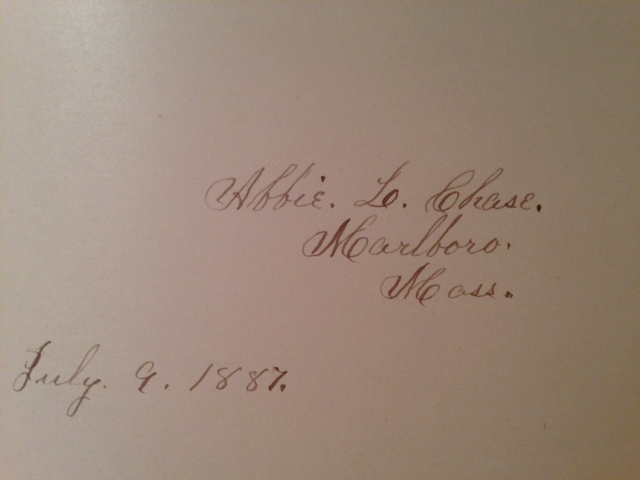 Abbie. L. Chase.
Marlboro.
Mass.
July. 9. 1887.